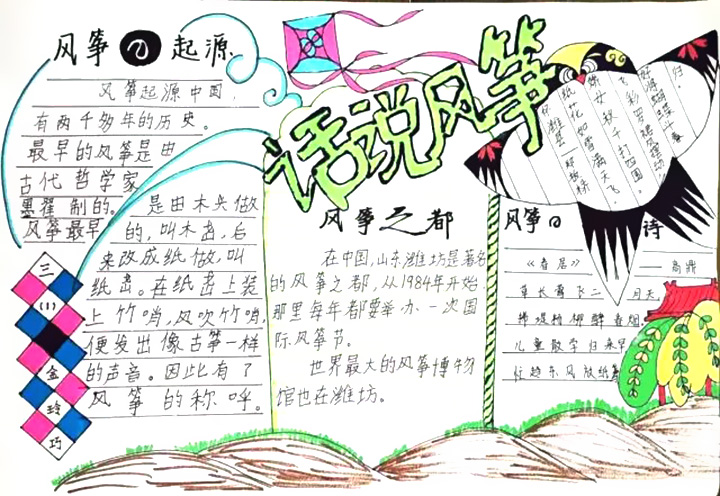 话说风筝
风筝の起源
风筝起源中国,
有两千多年的历史。
最早的风筝是由
古代哲学家
墨翟制的。是由木头做
风筝最早的,叫木鸢,后
来改成纸做,叫
纸鸢。在纸鸢上装
上竹哨,风吹竹哨,
便发出像古筝一样
的声音。因此有了
风筝的称呼。
三
(1)
金
玲
巧
风筝之都
在中国,山东潍坊是著名
的风筝之都,从1984年开始,
那里每年都要举办一次国
际风筝节。
世界最大的风筝博物
馆也在潍坊。
风筝の诗
《春居》
——高鼎
草长鸢飞二月天,
拂堤杨柳醉春烟。
儿童散学归来早,
忙趁东风放纸鸢
纸花如雪满天飞
女秋千打四围